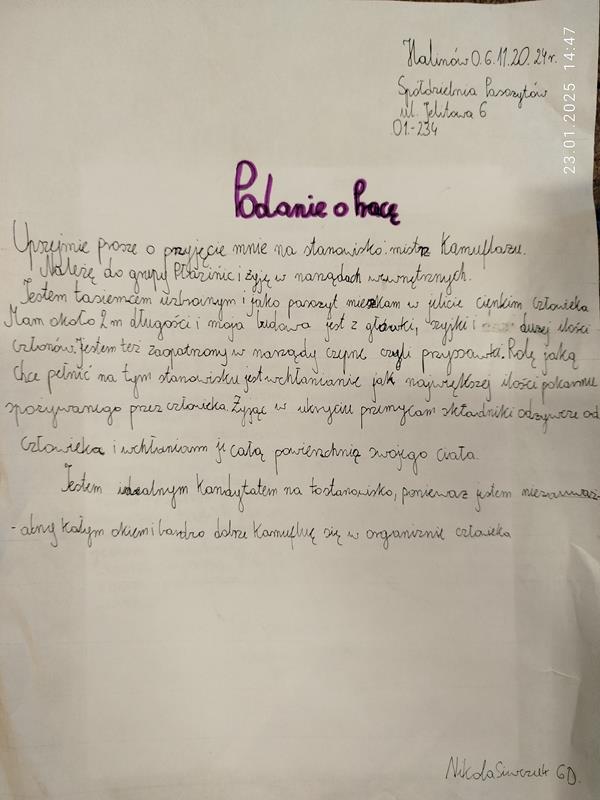 Halinów 06.11.2024r.
Spółdzielnia Pasożytów
ul. Jelitowa 6
01-234
23.01.2025 14:47
Podanie o Pracę
Uprzejmie proszę o przyjęcie mnie na stanowisko: mistrz Kamuflażu.
Należę do grupy Płazińic i żyję w narządach wewnętrznych.
Jestem tasiemcem uzbrojnym i jako pasożyt mieszkam w jelicie cienkim człowieka
Mam około 2 m długości i moja budowa jest z główki, szyjki i dużej ilości
członów. Jestem też zaopatrzony w narządy czepne czyli przyssawki. Rolę jaką
chcę pełnić na tym stanowisku jest wchłanianie jak największej ilości pokarmu
spożywanego przez człowieka. Żyjąc w ukryciu przemycam składniki odżywcze od
człowieka i wchłaniam je całą powierzchnią swojego ciała.
Jestem idealnym Kandytatem na tostanowisko, ponieważ jestem niezauważ-
-alny gołym okiem i bardzo dobrze kamufluję się w organizmie człowieka
Nikola 6D.